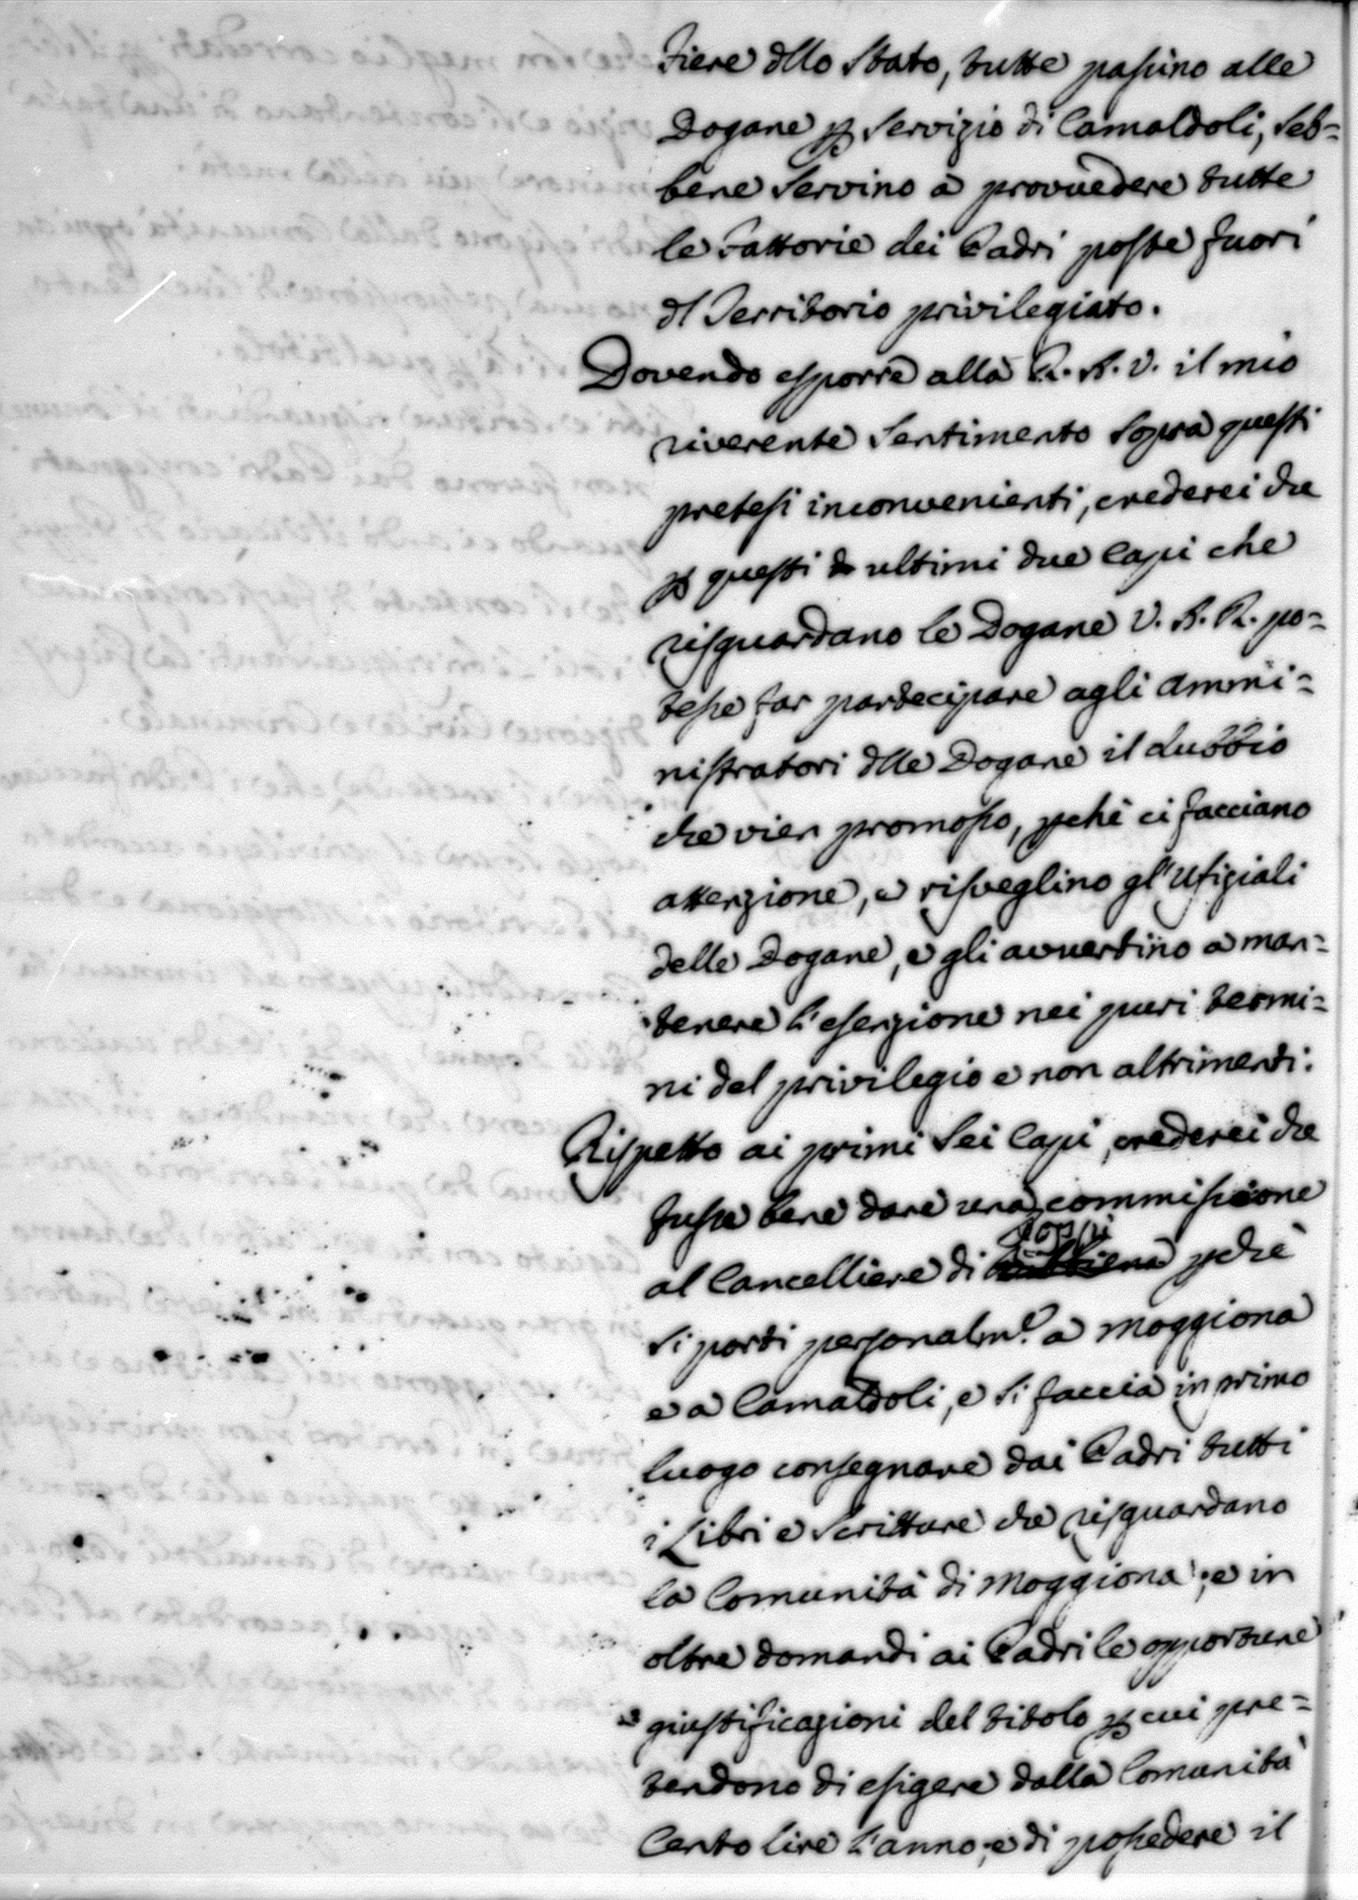 tiere dllo Stato, tutte passino alle
Dogane p servizio di Camaldoli, seb=
bene servino a provvedere tutte
le Fattorie dei Padri poste fuori
dl Territorio privilegiato.
Dovendo esporre alla R. A. V. il mio
riverente sentimento sopra questi
pretesi inconvenienti, crederei che
p questi ultimi due Capi che
risguardano le Dogane V. A. R. po=
tesse far partecipare agli Ammi=
nistratori dlle Dogane il dubbio
che vien promosso, pchè ci facciano
attenzione, e risveglino gl'Ufiziali
delle Dogane, e gli avvertino a man=
tenere l'esenzione nei puri termi=
ni del privilegio e non altrimenti.
Rispetto ai primi sei Capi, crederei che
fusse bene dare una commissione
al Cancelliere di Poppi pchè
si porti personalm.e a Moggiona
e a Camaldoli, e si faccia in primo
luogo consegnare dai Padri tutti
i Libri e Scritture che risguardano
la Comunità di Moggiona; e in
oltre domandi ai Padri le opportune
giustificazioni del titolo p cui pre=
tendono di esigere dalla Comunità
Cento lire l'anno, e di possedere il